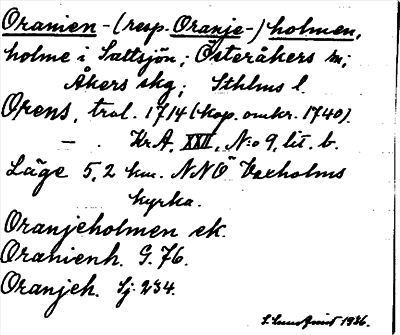 Oranien- (resp. Oranje-) holmen,
holme i Saltsjön; Österåkers sn;
Åkers skg; Sthlms l.
Orens, trol. 1714 (kop. omkr. 1740).
— . Kr A, XXII, N:o 9, lit. b.
Läge 5,2 km. NNO Vaxholms
kyrka.
Oranjeholmen ek.
Oranienh. G. 76.
Oranjeh. Sj: 234.
1926.